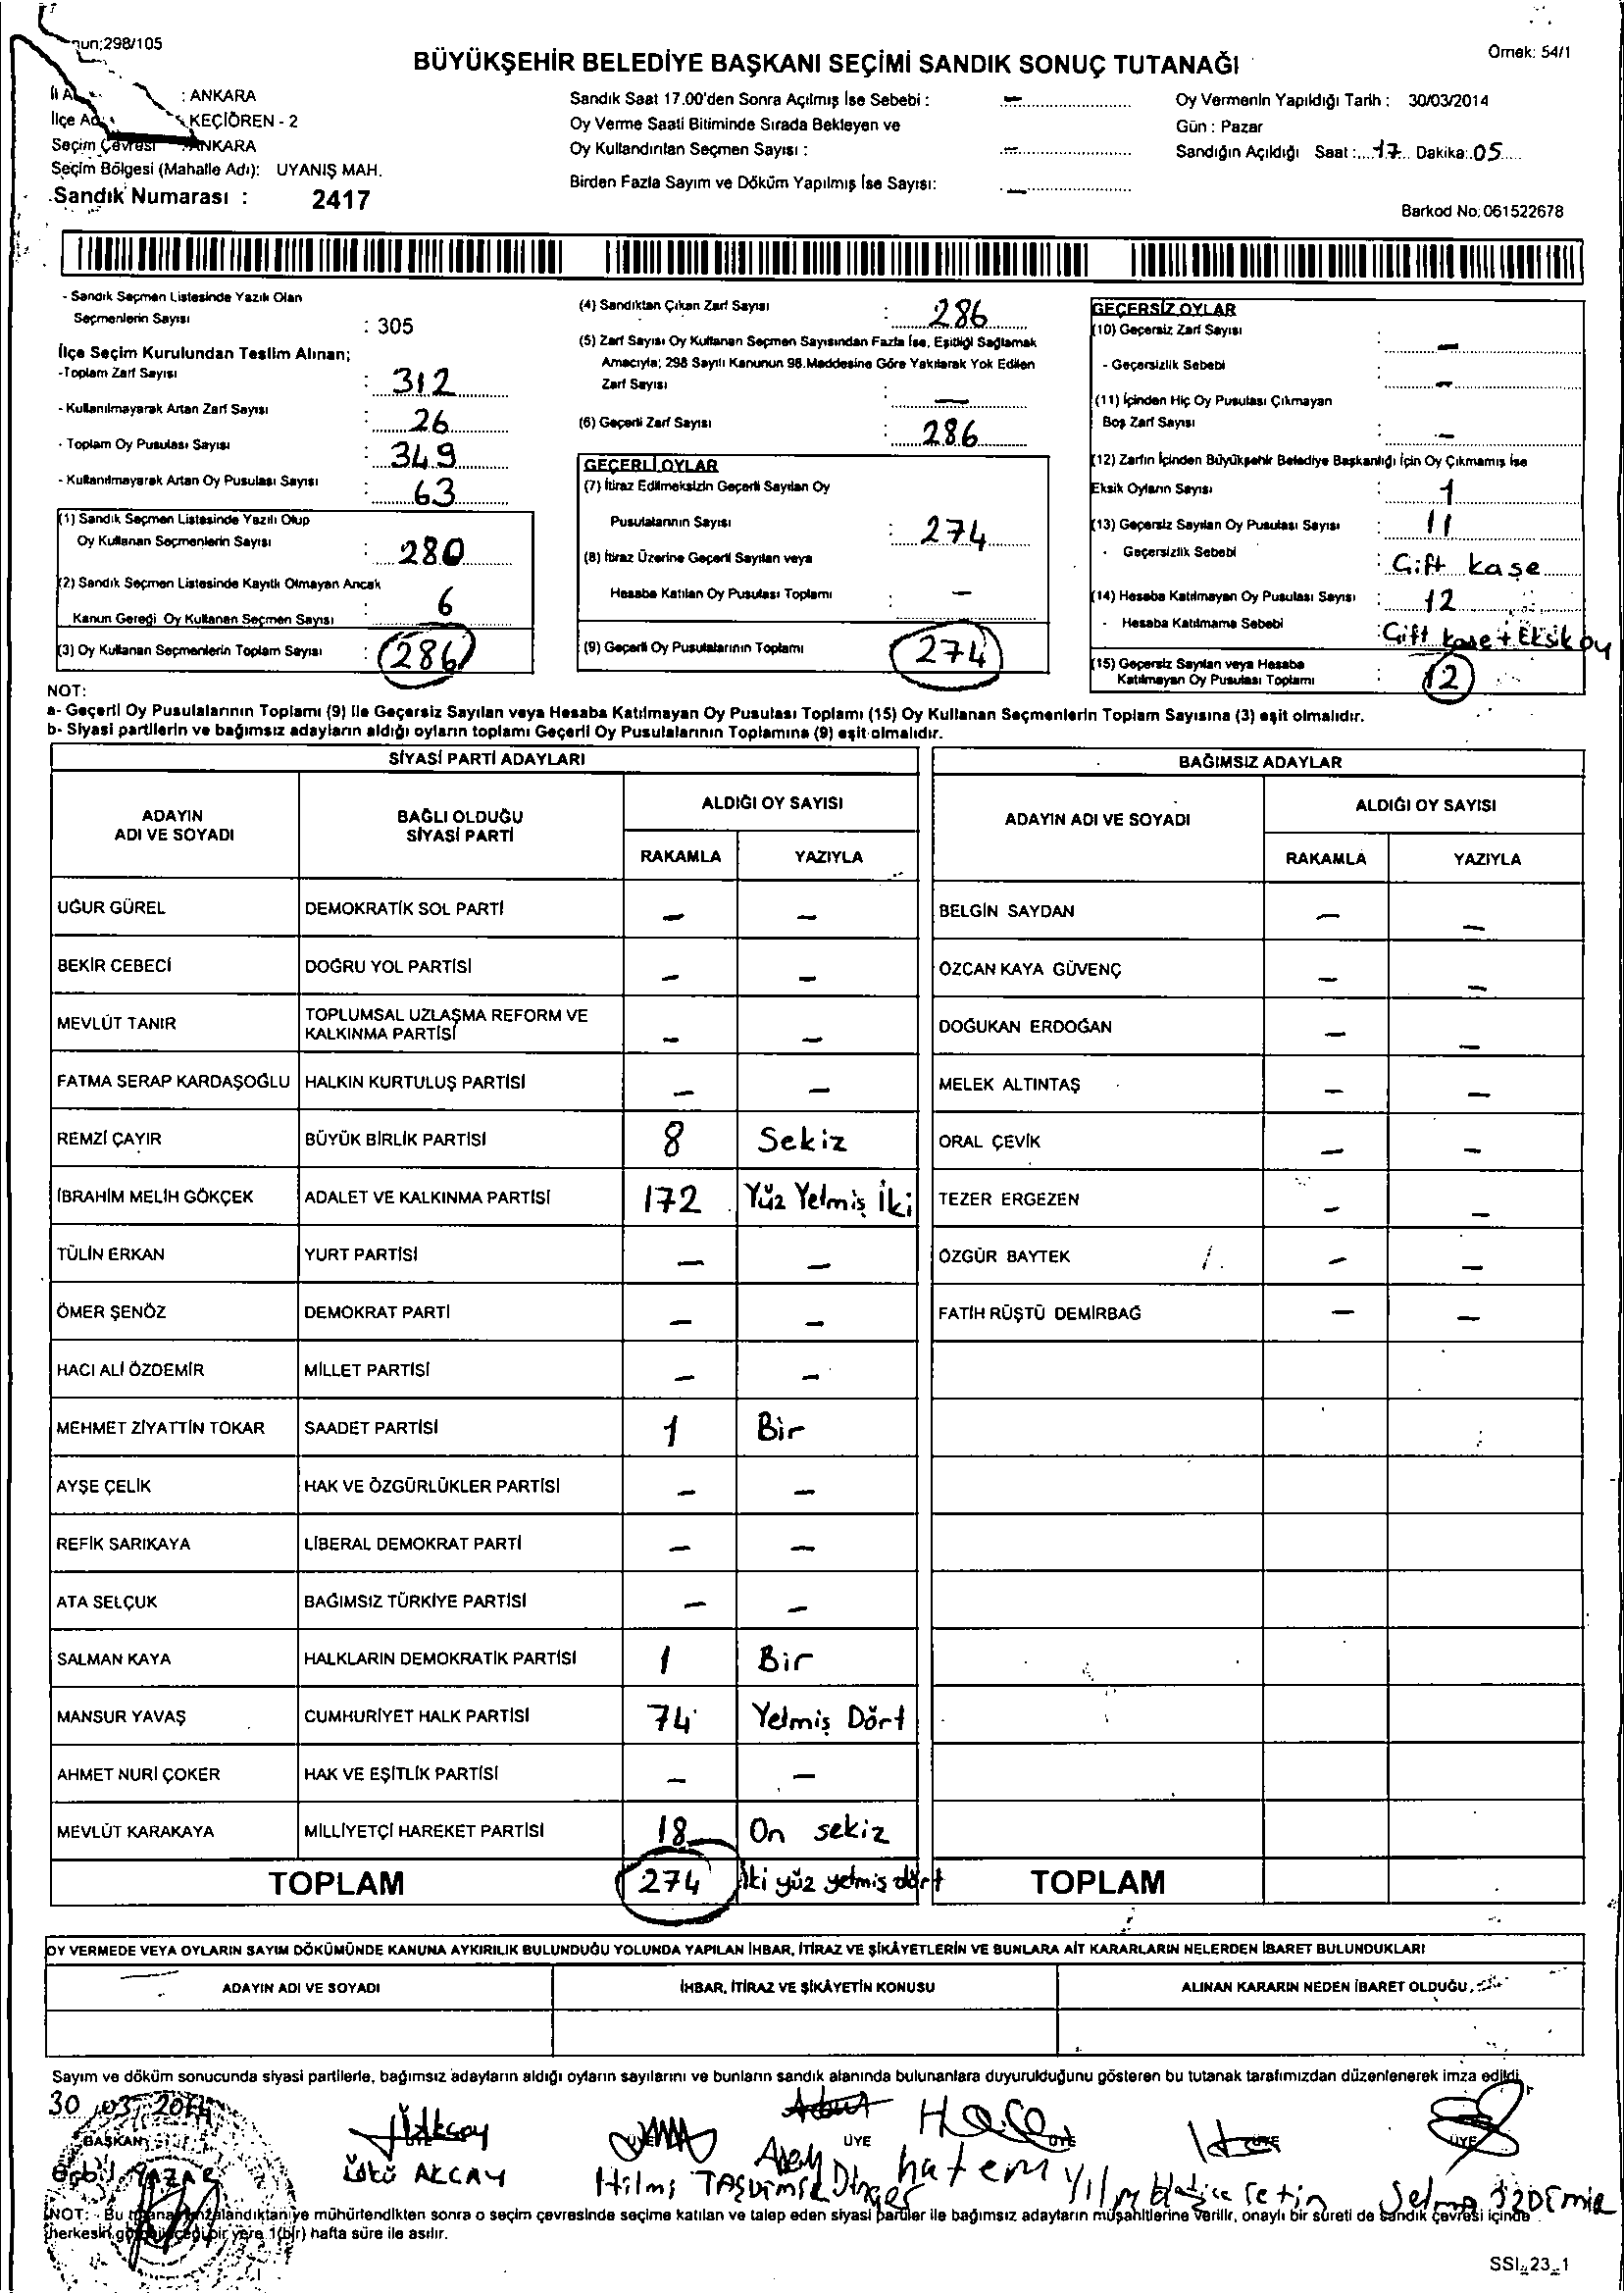 BÜYÜKŞEHİR BELEDİYE BAŞKANI SEÇİMİ SANDIK SONUÇ TUTANAĞI
Örnek: 54/1
: ANKARA
KEÇİÖREN - 2
Seçim Çevresi : ANKARA
Seçim Bölgesi (Mahalle Adı): UYANIŞ MAH.
Sandık Numarası : 2417
Sandık Saat 17.00'den Sonra Açılmış İse Sebebi : —
Oy Verme Saati Bitiminde Sırada Bekleyen ve
Oy Kullandırılan Seçmen Sayısı : —
Birden Fazla Sayım ve Döküm Yapılmış İse Sayısı: —
Oy Vermenin Yapıldığı Tarih : 30/03/2014
Gün : Pazar
Sandığın Açıldığı Saat :....17... Dakika:.05.....
Barkod No: 061522678
- Sandık Seçmen Listesinde Yazılı Olan
Seçmenlerin Sayısı : 305
İlçe Seçim Kurulundan Teslim Alınan;
-Toplam Zarf Sayısı : 312
- Kullanılmayarak Artan Zarf Sayısı : 26
- Toplam Oy Pusulası Sayısı : 349
- Kullanılmayarak Artan Oy Pusulası Sayısı : 63
(1) Sandık Seçmen Listesinde Yazılı Olup
Oy Kullanan Seçmenlerin Sayısı : 280
(2) Sandık Seçmen Listesinde Kayıtlı Olmayan Ancak
Kanun Gereği Oy Kullanan Seçmen Sayısı : 6
(3) Oy Kullanan Seçmenlerin Toplam Sayısı : 286
(4) Sandıktan Çıkan Zarf Sayısı : 286
(5) Zarf Sayısı Oy Kullanan Seçmen Sayısından Fazla İse, Eşitliği Sağlamak
Amacıyla; 298 Sayılı Kanunun 98.Maddesine Göre Yakılarak Yok Edilen
Zarf Sayısı : —
(6) Geçerli Zarf Sayısı : 286
GEÇERLİ OYLAR
(7) İtiraz Edilmeksizin Geçerli Sayılan Oy
Pusulalarının Sayısı : 274
(8) İtiraz Üzerine Geçerli Sayılan veya
Hesaba Katılan Oy Pusulası Toplamı : —
(9) Geçerli Oy Pusulalarının Toplamı : 274
GEÇERSİZ OYLAR
(10) Geçersiz Zarf Sayısı : —
- Geçersizlik Sebebi : —
(11) İçinden Hiç Oy Pusulası Çıkmayan
Boş Zarf Sayısı : —
(12) Zarfın İçinden Büyükşehir Belediye Başkanlığı İçin Oy Çıkmamış İse
Eksik Oyların Sayısı : 1
(13) Geçersiz Sayılan Oy Pusulası Sayısı : 11
- Geçersizlik Sebebi : Çift kaşe
(14) Hesaba Katılmayan Oy Pusulası Sayısı : 12
- Hesaba Katılmama Sebebi : Çift kaşe + Eksik oy
(15) Geçersiz Sayılan veya Hesaba
Katılmayan Oy Pusulası Toplamı : 12
NOT:
a- Geçerli Oy Pusulalarının Toplamı (9) İle Geçersiz Sayılan veya Hesaba Katılmayan Oy Pusulası Toplamı (15) Oy Kullanan Seçmenlerin Toplam Sayısına (3) eşit olmalıdır.
b- Siyasi partilerin ve bağımsız adayların aldığı oyların toplamı Geçerli Oy Pusulalarının Toplamına (9) eşit olmalıdır.
SİYASİ PARTİ ADAYLARI
ADAYIN ADI VE SOYADI BAĞLI OLDUĞU SİYASİ PARTİ ALDIĞI OY SAYISI
RAKAMLA YAZIYLA
UĞUR GÜREL DEMOKRATİK SOL PARTİ — —
BEKİR CEBECİ DOĞRU YOL PARTİSİ — —
MEVLÜT TANIR TOPLUMSAL UZLAŞMA REFORM VE KALKINMA PARTİSİ — —
FATMA SERAP KARDAŞOĞLU HALKIN KURTULUŞ PARTİSİ — —
REMZİ ÇAYIR BÜYÜK BİRLİK PARTİSİ 8 Sekiz
İBRAHİM MELİH GÖKÇEK ADALET VE KALKINMA PARTİSİ 172 Yüz Yetmiş İki
TÜLİN ERKAN YURT PARTİSİ — —
ÖMER ŞENÖZ DEMOKRAT PARTİ — —
HACI ALİ ÖZDEMİR MİLLET PARTİSİ — —
MEHMET ZİYATTİN TOKAR SAADET PARTİSİ 1 Bir
AYŞE ÇELİK HAK VE ÖZGÜRLÜKLER PARTİSİ — —
REFİK SARIKAYA LİBERAL DEMOKRAT PARTİ — —
ATA SELÇUK BAĞIMSIZ TÜRKİYE PARTİSİ — —
SALMAN KAYA HALKLARIN DEMOKRATİK PARTİSİ 1 Bir
MANSUR YAVAŞ CUMHURİYET HALK PARTİSİ 74 Yetmiş Dört
AHMET NURİ ÇOKER HAK VE EŞİTLİK PARTİSİ — —
MEVLÜT KARAKAYA MİLLİYETÇİ HAREKET PARTİSİ 18 On sekiz
TOPLAM 274 İki yüz yetmiş dört
BAĞIMSIZ ADAYLAR
ADAYIN ADI VE SOYADI ALDIĞI OY SAYISI
RAKAMLA YAZIYLA
BELGİN SAYDAN — —
ÖZCAN KAYA GÜVENÇ — —
DOĞUKAN ERDOĞAN — —
MELEK ALTINTAŞ — —
ORAL ÇEVİK — —
TEZER ERGEZEN — —
ÖZGÜR BAYTEK — —
FATİH RÜŞTÜ DEMİRBAĞ — —
TOPLAM
OY VERMEDE VEYA OYLARIN SAYIM DÖKÜMÜNDE KANUNA AYKIRILIK BULUNDUĞU YOLUNDA YAPILAN İHBAR, İTİRAZ VE ŞİKÂYETLERİN VE BUNLARA AİT KARARLARIN NELERDEN İBARET BULUNDUKLARI
ADAYIN ADI VE SOYADI İHBAR, İTİRAZ VE ŞİKÂYETİN KONUSU ALINAN KARARIN NEDEN İBARET OLDUĞU
Sayım ve döküm sonucunda siyasi partilerle, bağımsız adayların aldığı oyların sayılarını ve bunların sandık alanında bulunanlara duyurulduğunu gösteren bu tutanak tarafımızdan düzenlenerek imza edildi.
30 03 2014
BAŞKAN ÜYE ÜYE ÜYE ÜYE ÜYE
YAZAR AKÇAY Hilmi TAŞDEMİR Dinçer hatem Hatice Çetin Selma ÖZDEMİR
NOT: - Bu tutanak imzalandıktan ve mühürlendikten sonra o seçim çevresinde seçime katılan ve talep eden siyasi partiler ile bağımsız adayların müşahitlerine verilir, onaylı bir sureti de sandık çevresi içinde
herkesin görebileceği bir yere 1(bir) hafta süre ile asılır.
SSI_23_1